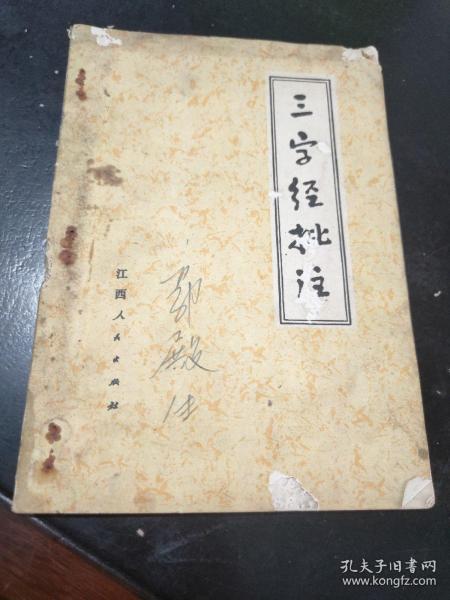 三字经批注
江西人民出版社
孔夫子旧书网
www.kongfz.com